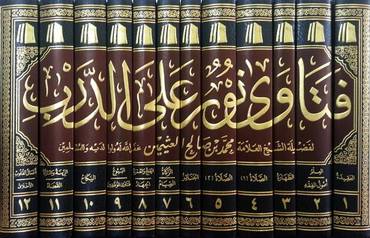 فتاوى نور على الدرب
لفضيلة الشيخ العلامة محمد بن صالح العثيمين غفر الله له ولوالديه وللمسلمين
العقيدة
الطهارة
الصلاة (١)
الصلاة (٢)
الجنائز
النكاح
١ ٢ ٣ ٤ ٥ ٦ ٧ ٨ ٩ ١٠ ١١ ١٢